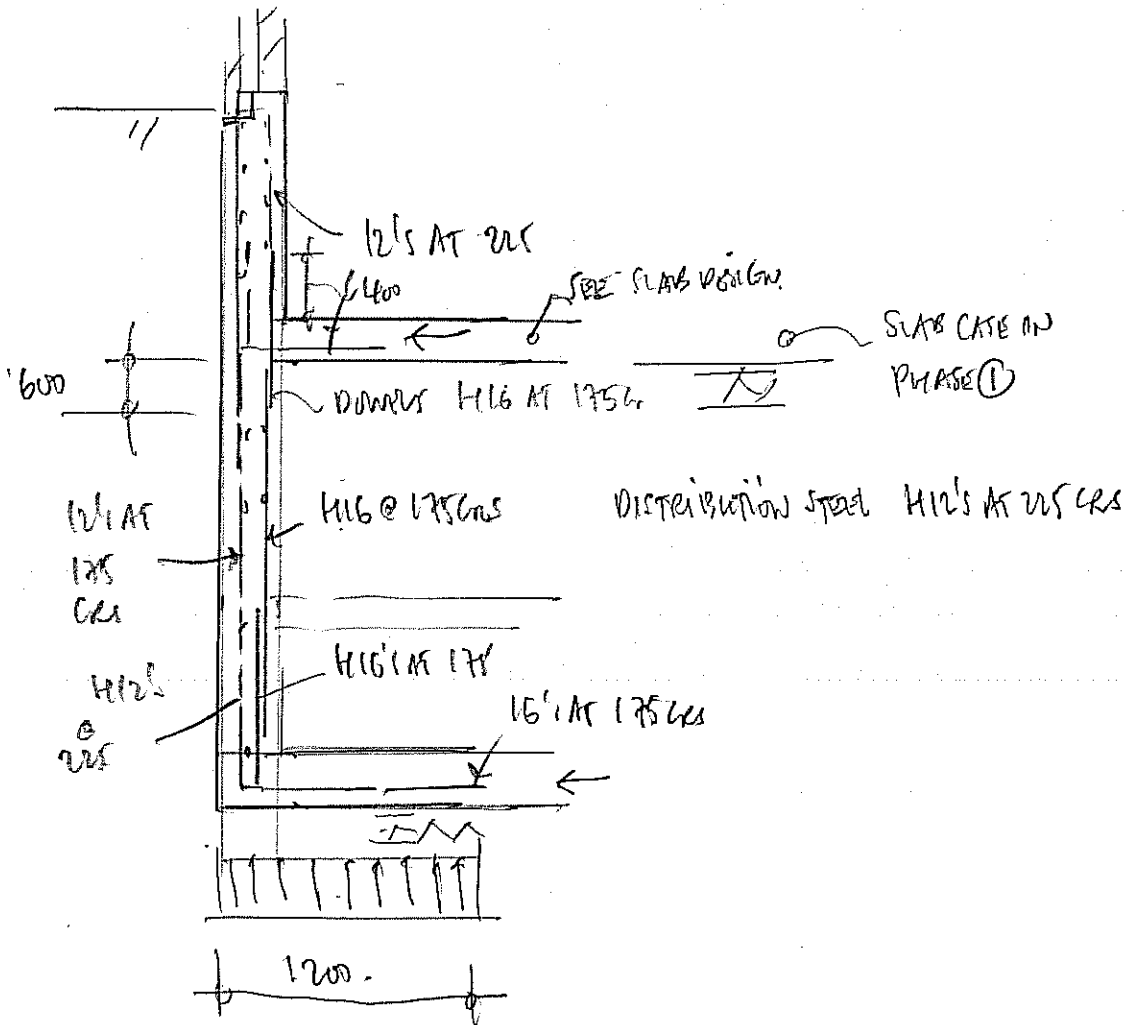 12's AT 225
400
SEE SLAB DESIGN.
SLAB CAST IN
PHASE ①
600
DOWELS H16 AT 175
12's AT
175
CRS
H16 @ 175CRS
DISTRIBUTION STEEL H12's AT 225 CRS
H16's AT 175
H12's
@
225
16's AT 175CRS
1200.